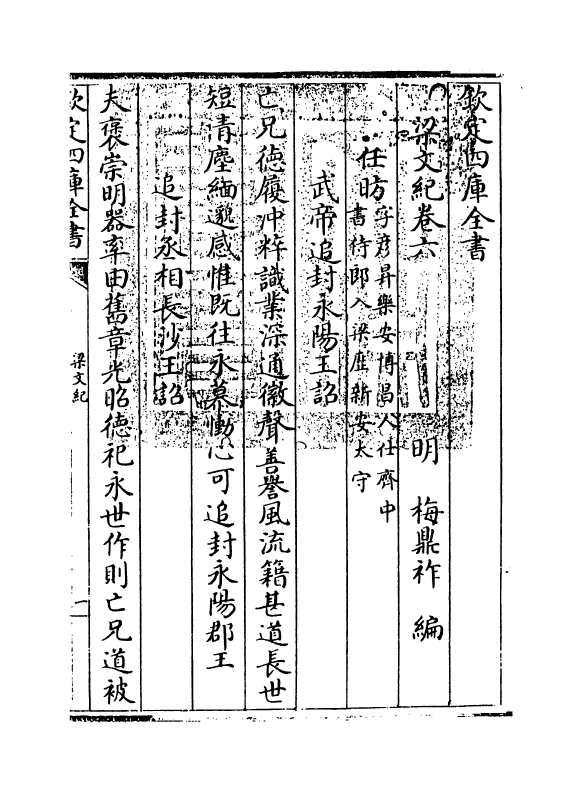 欽定四庫全書
梁文紀卷六
明 梅鼎祚 編
任昉字彥昇樂安博昌人仕齊中
書侍郎入梁歷新安太守
武帝追封永陽王詔
亡兄德履沖粹識業深通徽聲善譽風流籍甚道長世
短清塵緬邈感惟既往永慕慟心可追封永陽郡王
追封丞相長沙王詔
夫褒崇明器率由舊章光昭德祀永世作則亡兄道被
欽定四庫全書
梁文紀
一